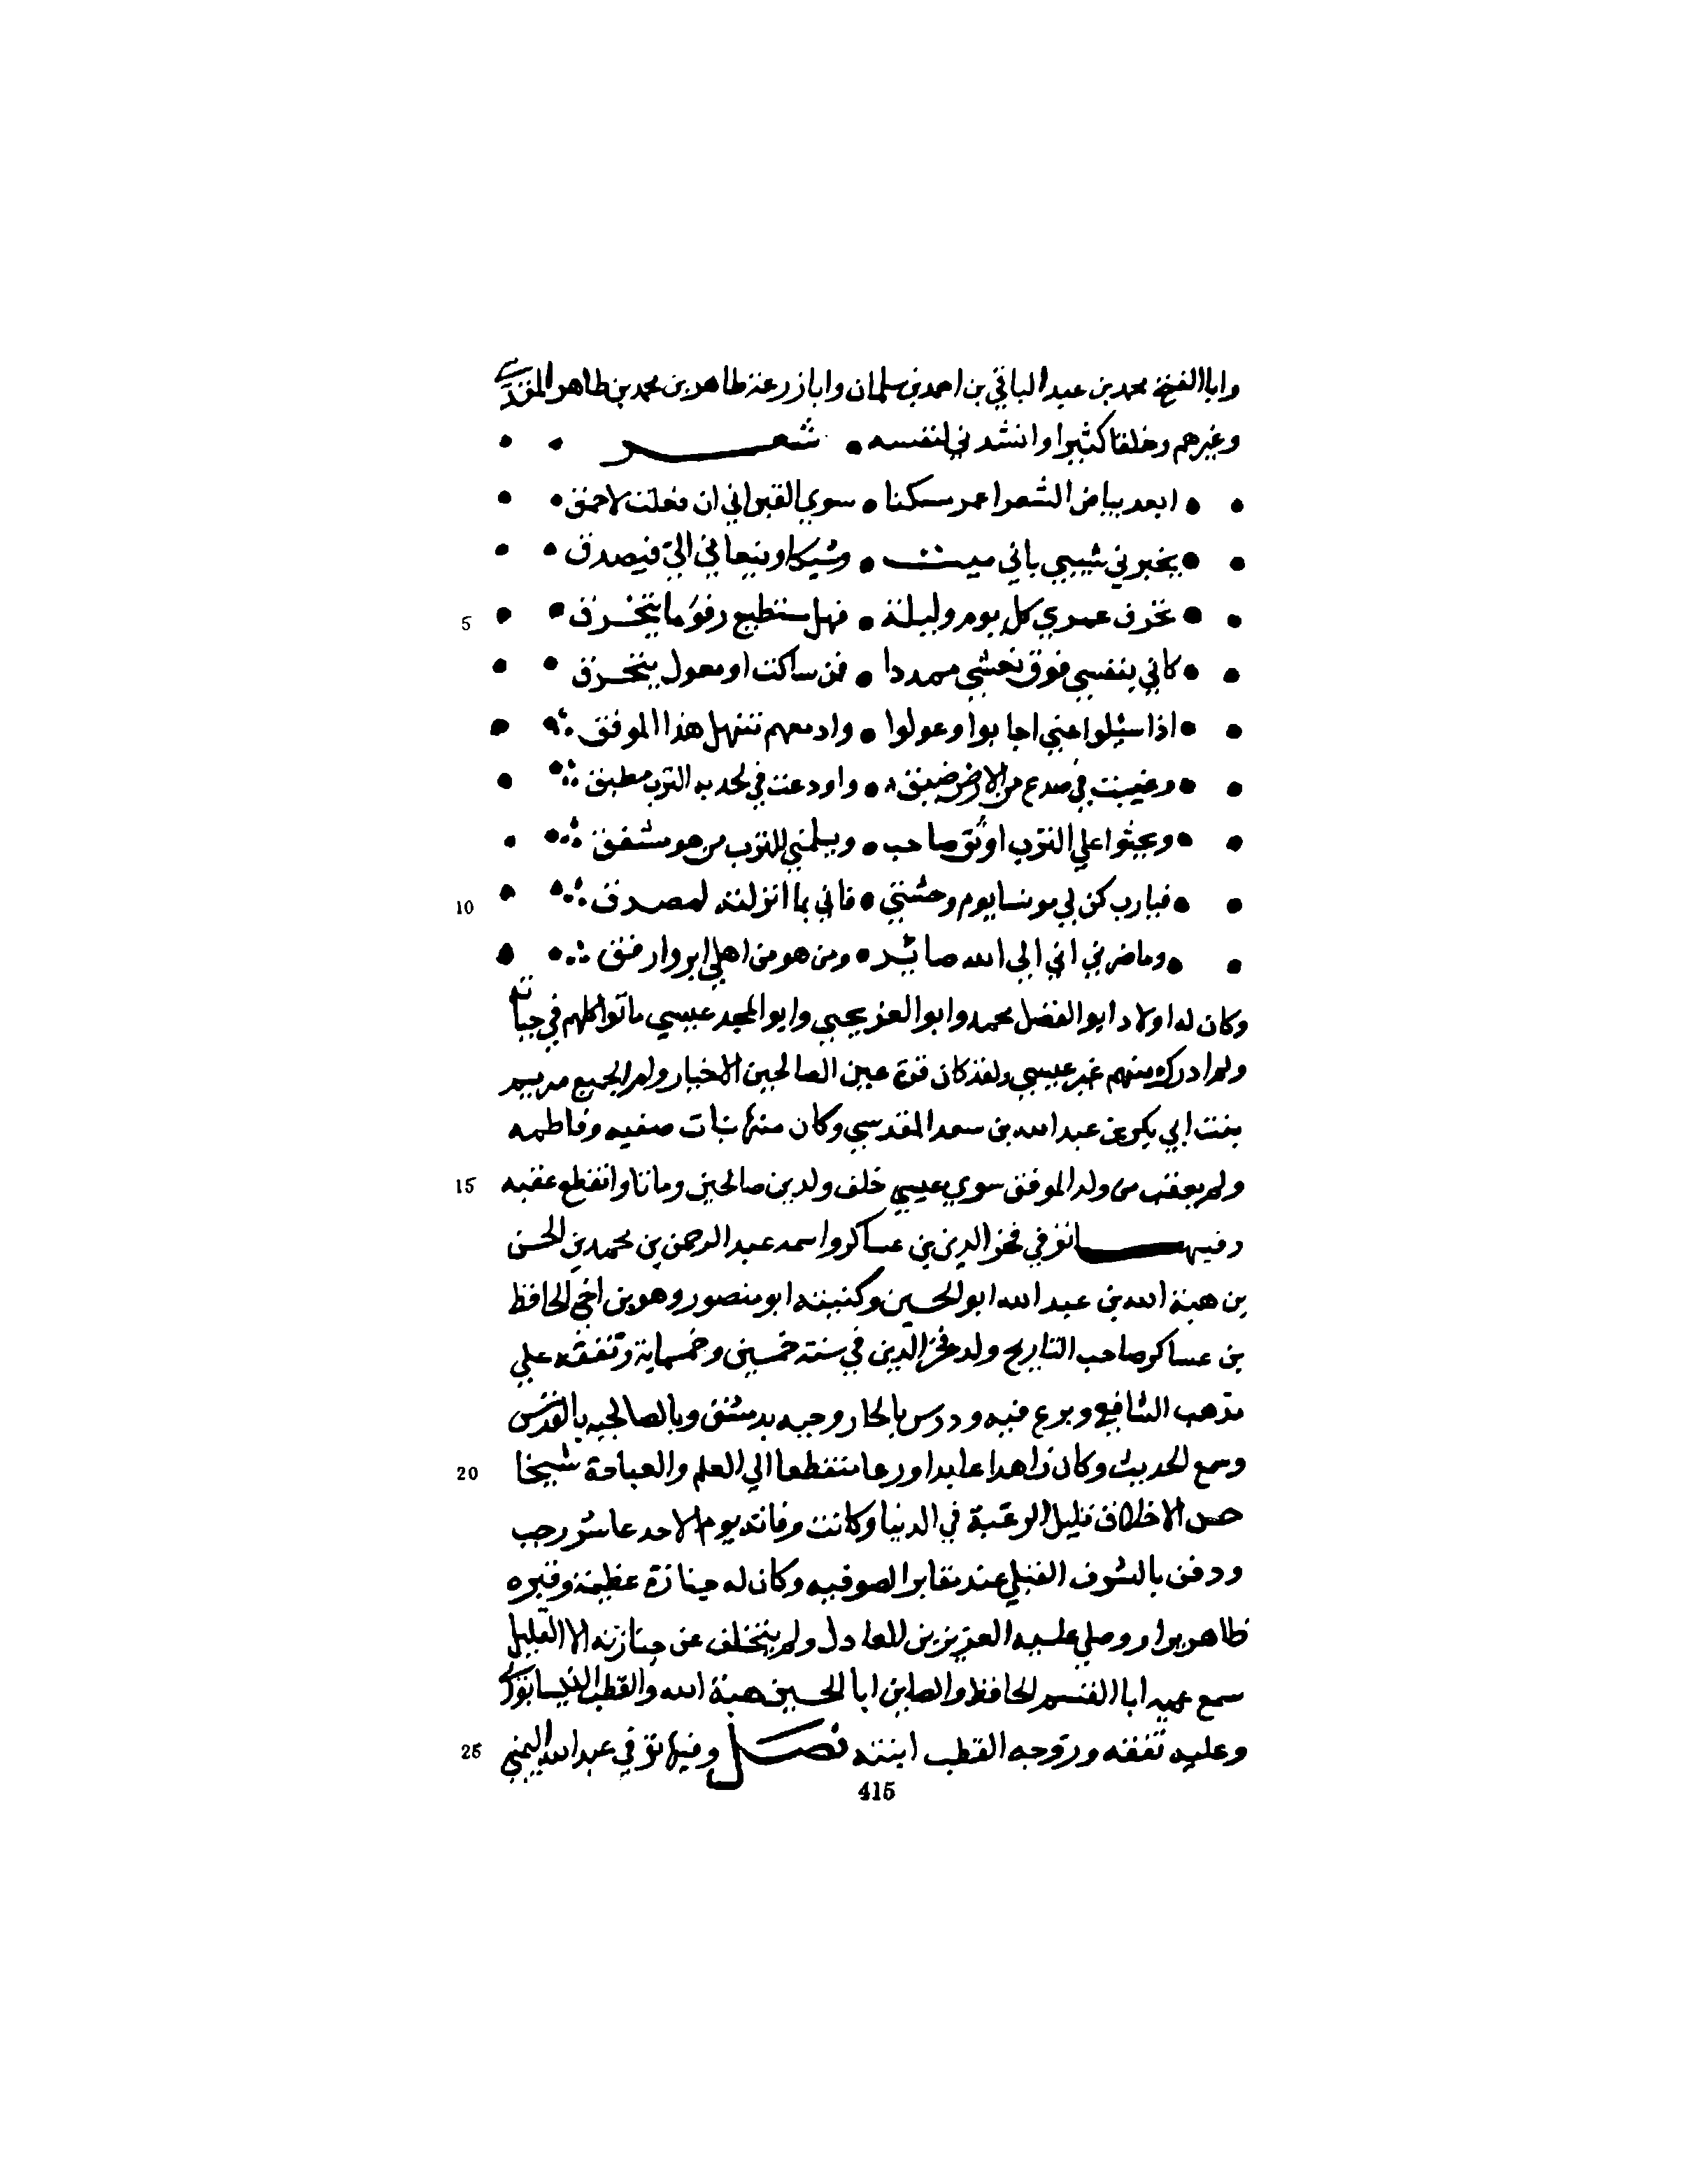 وابا الفتح محمد بن عبد الباقي بن احمد بن سلمان وابا زرعة طاهر بن محمد بن طاهر المقدسي
وغيرهم وخلقا كثيرا وانشدني لنفسه • شعر • •
• • ابعد بياض الشعر اعمر مسكنا • سوي القبر اني ان فعلت لاحمق • •
• • يخبرني شيبي باني ميت • وشيكا وينعاني الي فيصدق • •
• • تخرق عمري كل يوم وليلة • فهل ستطيع رفو ما يتخرق • • 5
• • كاني بنفسي فوق نعشي ممددا • فمن ساكت او معول يتحرق • •
• • اذا سيلوا عني اجابوا وعولوا • وادمعهم تنهل هذا الموفق ∴ •
• • وغيبت في صدع من الارض ضيق • واودعت في لحد به الترب مطبق ∴ •
• • ويحثوا علي الترب اوثق صاحب • ويسلمني للترب من هو مشفق ∴ •
• • فيا رب كن لي مونسا يوم وحشتي • فاني بما انزلته لمصدق ∴ • 10
• • وما ضرني اني الي الله صائر • ومن هو من اهلي ابر وارفق ∴ •
وكان له اولاد ابو الفضل محمد وابو العز يحيي وابو المجد عيسي ماتوا كلهم في حياته
ولم ادرك منهم غير عيسي ولقد كان قرة عين الصالحين الاخيار وام الجميع مريم
بنت ابي بكر بن عبد الله بن سعد المقدسي وكان منها بنات صفيه وفاطمه
ولم يعقب من ولد الموفق سوي عيسي خلف ولدين صالحين وماتا وانقطع عقبه 15
وفيها توفي فخر الدين بن عساكر واسمه عبد الرحمن بن محمد بن الحسن
بن هبة الله بن عبد الله ابو الحسين وكنيته ابو منصور وهو بن اخي الحافظ
بن عساكر صاحب التاريخ ولد فخر الدين في سنة خمسين وخمسماية وتفقه علي
مذهب الشافعي وبرع فيه ودرس بالجاروخيه بدمشق وبالصالحيه بالقدس
وسمع الحديث وكان زاهدا عابدا ورعا منقطعا الي العلم والعباحة شيخا 20
حسن الاخلاق قليل الرغبة في الدنيا وكانت وفاته يوم الاحد عاشر رجب
ودفن بالشرف القبلي عند مقابر الصوفيه وكان له جنازة عظيمة وقبره
ظاهر يزار وصلي عليه العزيز بن العادل ولم يتخلف عن جنازته الا القليل
سمع عميه ابا القسم الحافظ والصاين ابا الحسين هبة الله والقطب النيسابوري
وعليه تفقه وزوجه القطب ابنته فصل وفيها توفي عبد الله اليمني 25
415